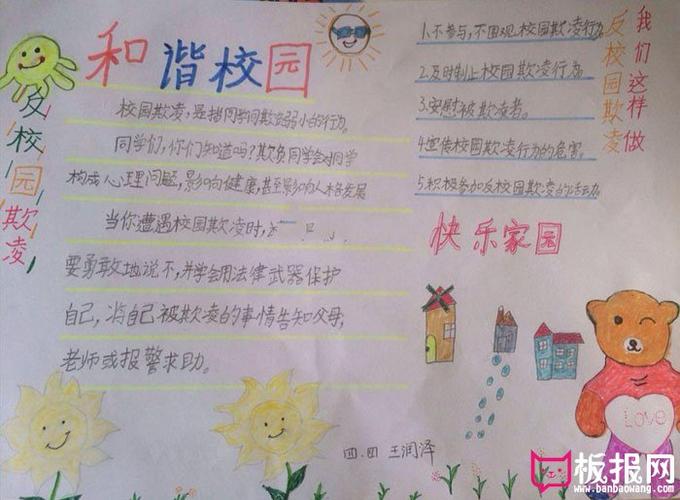 和谐校园
反校园欺凌
校园欺凌,是指同学间欺负弱小的行为。
同学们,你们知道吗?欺负同学会对同学
构成心理问题,影响健康,甚至影响人格发展
当你遭遇校园欺凌时,
要勇敢地说不,并学会用法律武器保护
自己,将自己被欺凌的事情告知父母,
老师或报警求助。
1.不参与,不围观校园欺凌行为
2.及时制止校园欺凌行为
3.安慰被欺凌者。
4.宣传校园欺凌行为的危害。
5.积极参加反校园欺凌的活动
我们这样做
反校园欺凌
快乐家园
Love
四.四 王润泽
板报网
www.banbaowang.com